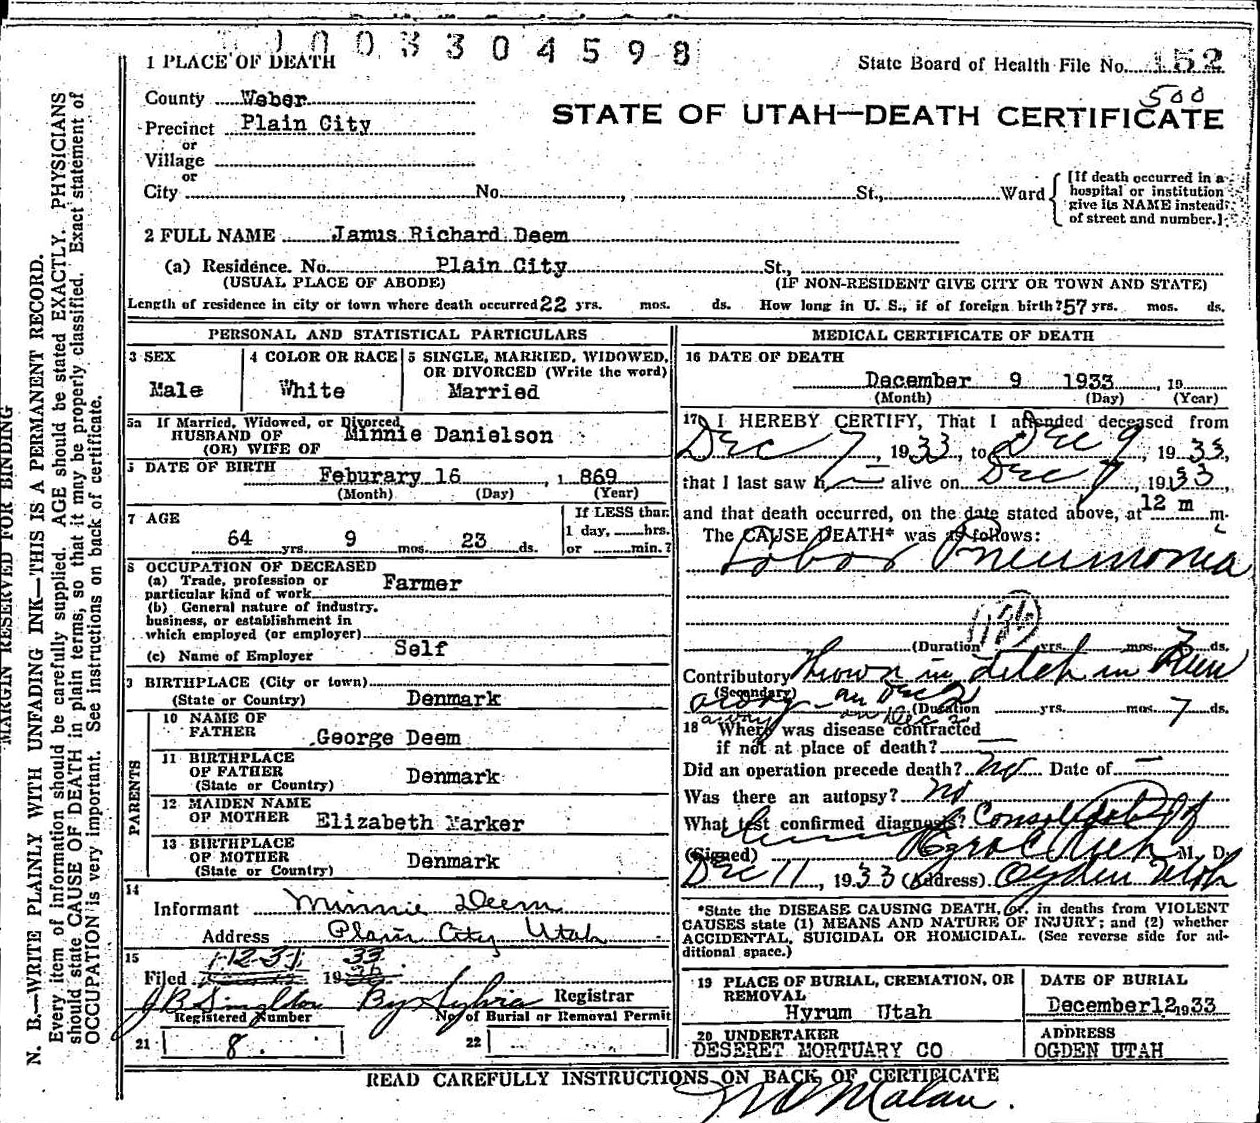 1003304598
1 PLACE OF DEATH
State Board of Health File No. 152
500
County Weber
STATE OF UTAH—DEATH CERTIFICATE
Precinct Plain City
or
Village
or
City No. , St., Ward
[If death occurred in a
hospital or institution
give its NAME instead
of street and number.]
2 FULL NAME Janus Richard Deem
(a) Residence. No. Plain City St.,
(USUAL PLACE OF ABODE) (IF NON-RESIDENT GIVE CITY OR TOWN AND STATE)
Length of residence in city or town where death occurred 22 yrs. mos. ds. How long in U. S., if of foreign birth? 57 yrs. mos. ds.
PERSONAL AND STATISTICAL PARTICULARS
3 SEX
Male
4 COLOR OR RACE
White
5 SINGLE, MARRIED, WIDOWED,
OR DIVORCED (Write the word)
Married
5a If Married, Widowed, or Divorced
HUSBAND OF Minnie Danielson
(OR) WIFE OF
DATE OF BIRTH
Feburary 16 , 1 869
(Month) (Day) (Year)
7 AGE
64 yrs. 9 mos. 23 ds.
If LESS than
1 day, hrs.
or min.?
8 OCCUPATION OF DECEASED
(a) Trade, profession or
particular kind of work Farmer
(b) General nature of industry,
business, or establishment in
which employed (or employer)
(c) Name of Employer Self
9 BIRTHPLACE (City or town)
(State or Country) Denmark
PARENTS
10 NAME OF
FATHER George Deem
11 BIRTHPLACE
OF FATHER
(State or Country) Denmark
12 MAIDEN NAME
OF MOTHER Elizabeth Marker
13 BIRTHPLACE
OF MOTHER
(State or Country) Denmark
14
Informant Minnie Deem
Address Plain City Utah
15 1-12-31 33
Filed 19
J B Singleton By Sylvia Registrar
Registered Number No. of Burial or Removal Permit
21 8. 22
MEDICAL CERTIFICATE OF DEATH
16 DATE OF DEATH
December 9 1933 , 19
(Month) (Day) (Year)
17 I HEREBY CERTIFY, That I attended deceased from
Dec 7 , 1933, to Dec 9 , 1933,
that I last saw h alive on Dec 9 , 1933,
and that death occurred, on the date stated above, at 12 m m.
The CAUSE DEATH* was as follows:
Lobar Pneumonia
(Duration yrs. mos. 7 ds.
Contributory Thrown in ditch in Run
(Secondary) away on Dec 2
(Duration yrs. mos. 7 ds.
away on Dec 2
18 Where was disease contracted
if not at place of death?
Did an operation precede death? no Date of —
Was there an autopsy? no
What test confirmed diagnosis? Consolidation of
Lung
(Signed) Ezra C Rich M. D.
Dec 11, 1933 (Address) Ogden Utah
*State the DISEASE CAUSING DEATH, or, in deaths from VIOLENT
CAUSES state (1) MEANS AND NATURE OF INJURY; and (2) whether
ACCIDENTAL, SUICIDAL OR HOMICIDAL. (See reverse side for ad-
ditional space.)
19 PLACE OF BURIAL, CREMATION, OR
REMOVAL
Hyrum Utah
DATE OF BURIAL
December12 1933
20 UNDERTAKER
DESERET MORTUARY CO
ADDRESS
OGDEN UTAH
READ CAREFULLY INSTRUCTIONS ON BACK OF CERTIFICATE
Malan.
MARGIN RESERVED FOR BINDING
N. B.—WRITE PLAINLY WITH UNFADING INK—THIS IS A PERMANENT RECORD.
Every item of information should be carefully supplied. AGE should be stated EXACTLY. PHYSICIANS
should state CAUSE OF DEATH in plain terms, so that it may be properly classified. Exact statement of
OCCUPATION is very important. See instructions on back of certificate.